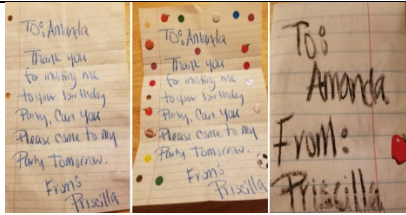 To: Amanda
Thank you
for inviting me
to your birthday
Party, Can you
Please come to my
Party Tomorrow.
From:
Priscilla
To: Amanda
Thank you
for inviting me
to your birthday
Party, Can you
Please come to my
Party Tomorrow.
From:
Priscilla
To:
Amanda
From:
Priscilla